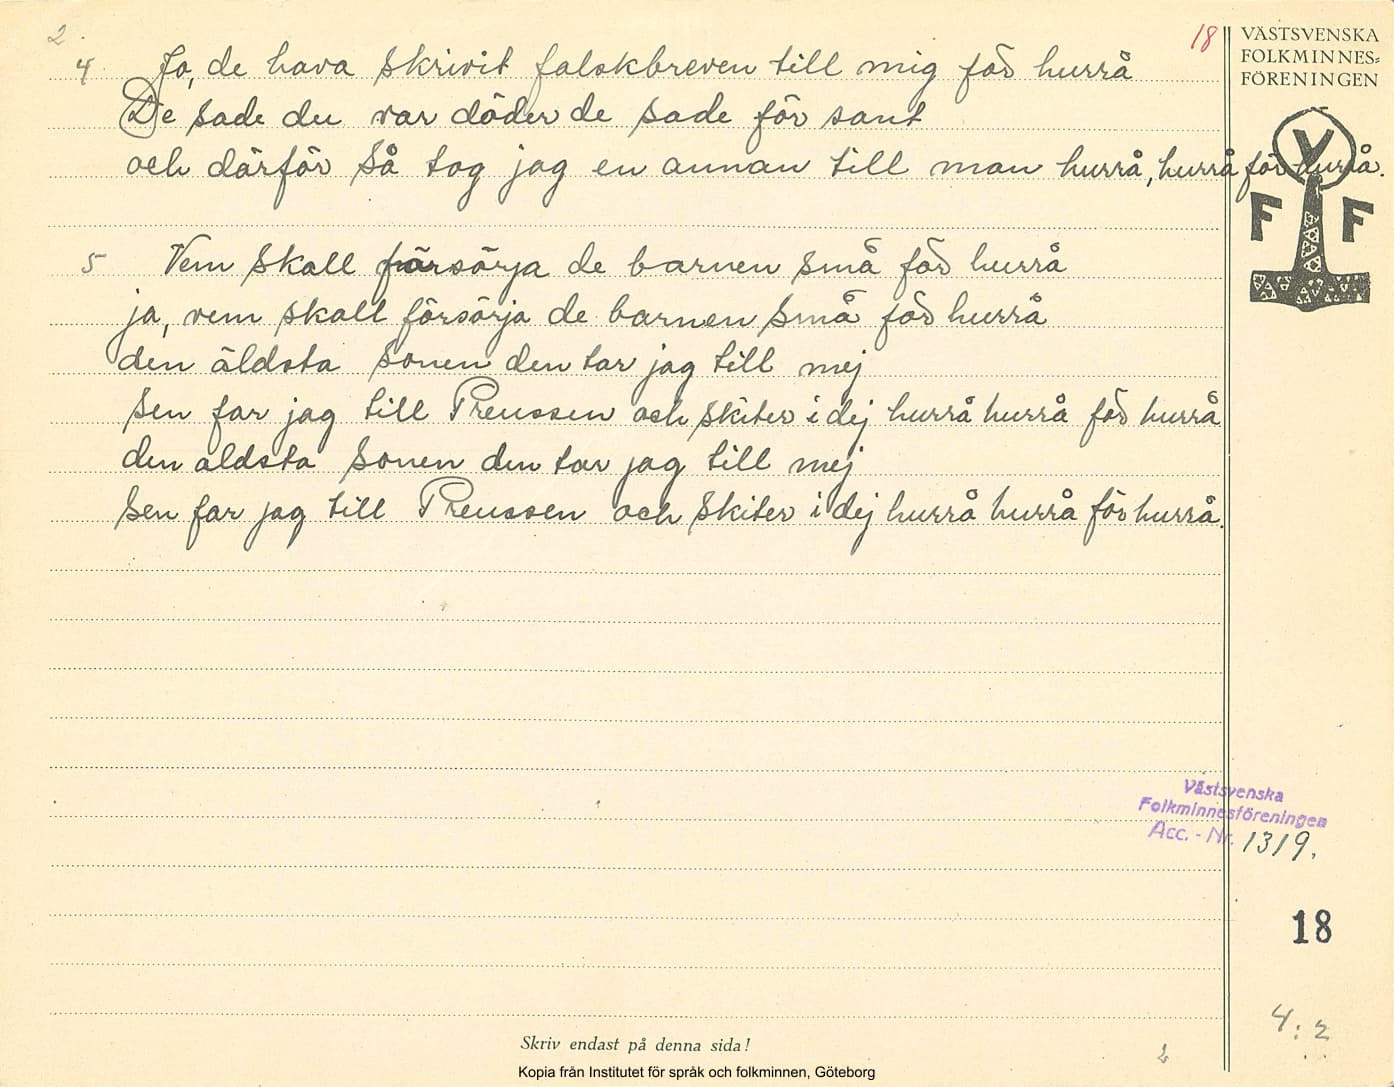 2.
18
VÄSTSVENSKA
FOLKMINNES=
FÖRENINGEN
V
F F
4 Jo, de hava skrivit falskbreven till mig för hurrå
De sade du var döder de sade för sant
och därför så tog jag en annan till man hurrå, hurrå för hurrå.
5 Vem skall försörja de barnen små för hurrå
ja, vem skall försörja de barnen små för hurrå
den äldsta sonen den tar jag till mej
sen far jag till Preussen och skiter i dej hurrå hurrå för hurrå
den äldsta sonen den tar jag till mej
sen far jag till Preussen och skiter i dej hurrå hurrå för hurrå.
Västsvenska
Folkminnesföreningen
Acc. - Nr. 1319.
18
4:2
Skriv endast på denna sida!
2
Kopia från Institutet för språk och folkminnen, Göteborg